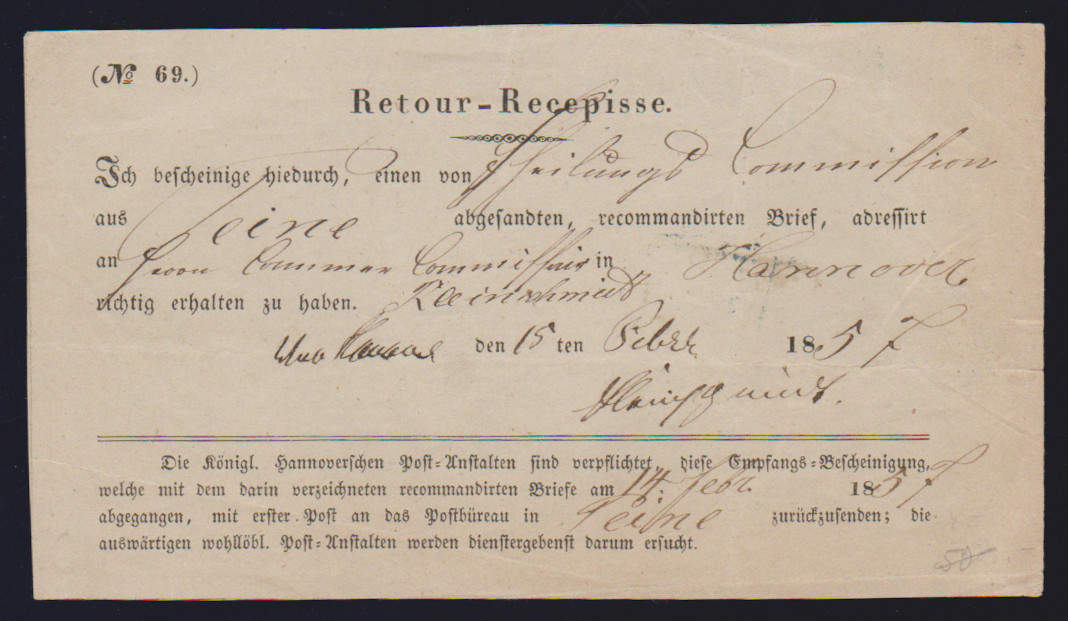 (No 69.)
Retour-Recepisse.
Ich bescheinige hiedurch, einen von Theilungs Commission
aus Peine abgesandten, recommandirten Brief, adressirt
an Herrn Commissair in Hannover
richtig erhalten zu haben. Kleinschmidt
den 15 ten Febr 1857
Die Königl. Hannoverschen Post-Anstalten sind verpflichtet, diese Empfangs-Bescheinigung,
welche mit dem darin verzeichneten recommandirten Briefe am 14. Febr. 1857
abgegangen, mit erster Post an das Postbüreau in Peine zurückzusenden; die
auswärtigen wohllöbl. Post-Anstalten werden dienstergebenst darum ersucht.
50